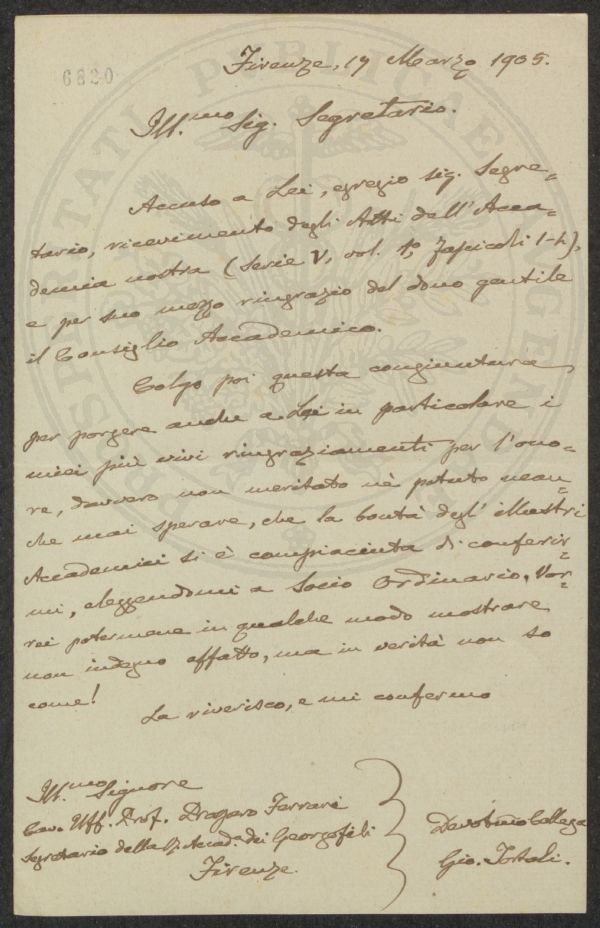 6820
Firenze, 17 Marzo 1905.
Ill.mo Sig. Segretario.
Accuso a Lei, egregio sig. Segre=
tario, ricevimento degli Atti dell'Acca=
demia nostra (Serie V, vol. 1°, fascicoli 1-4),
e per suo mezzo ringrazio del dono gentile
il Consiglio Accademico.
Colgo poi questa congiuntura
per porgere anche a Lei in particolare i
miei più vivi ringraziamenti per l'ono=
re, davvero non meritato nè potuto nean=
che mai sperare, che la bontà degl'illustri
Accademici si è compiaciuta di conferir=
mi, eleggendomi a Socio Ordinario. Vor=
rei potermene in qualche modo mostrare
non indegno affatto, ma in verità non so
come!
La riverisco, e mi confermo
Ill.mo Signore
Cav. Uff. Prof. Ferrari
Segretario della R. Accad. dei Georgofili
Firenze.
Devotmo Collega
Gio. Tortoli.
PROSPERITATI PUBLICAE AUGENDAE